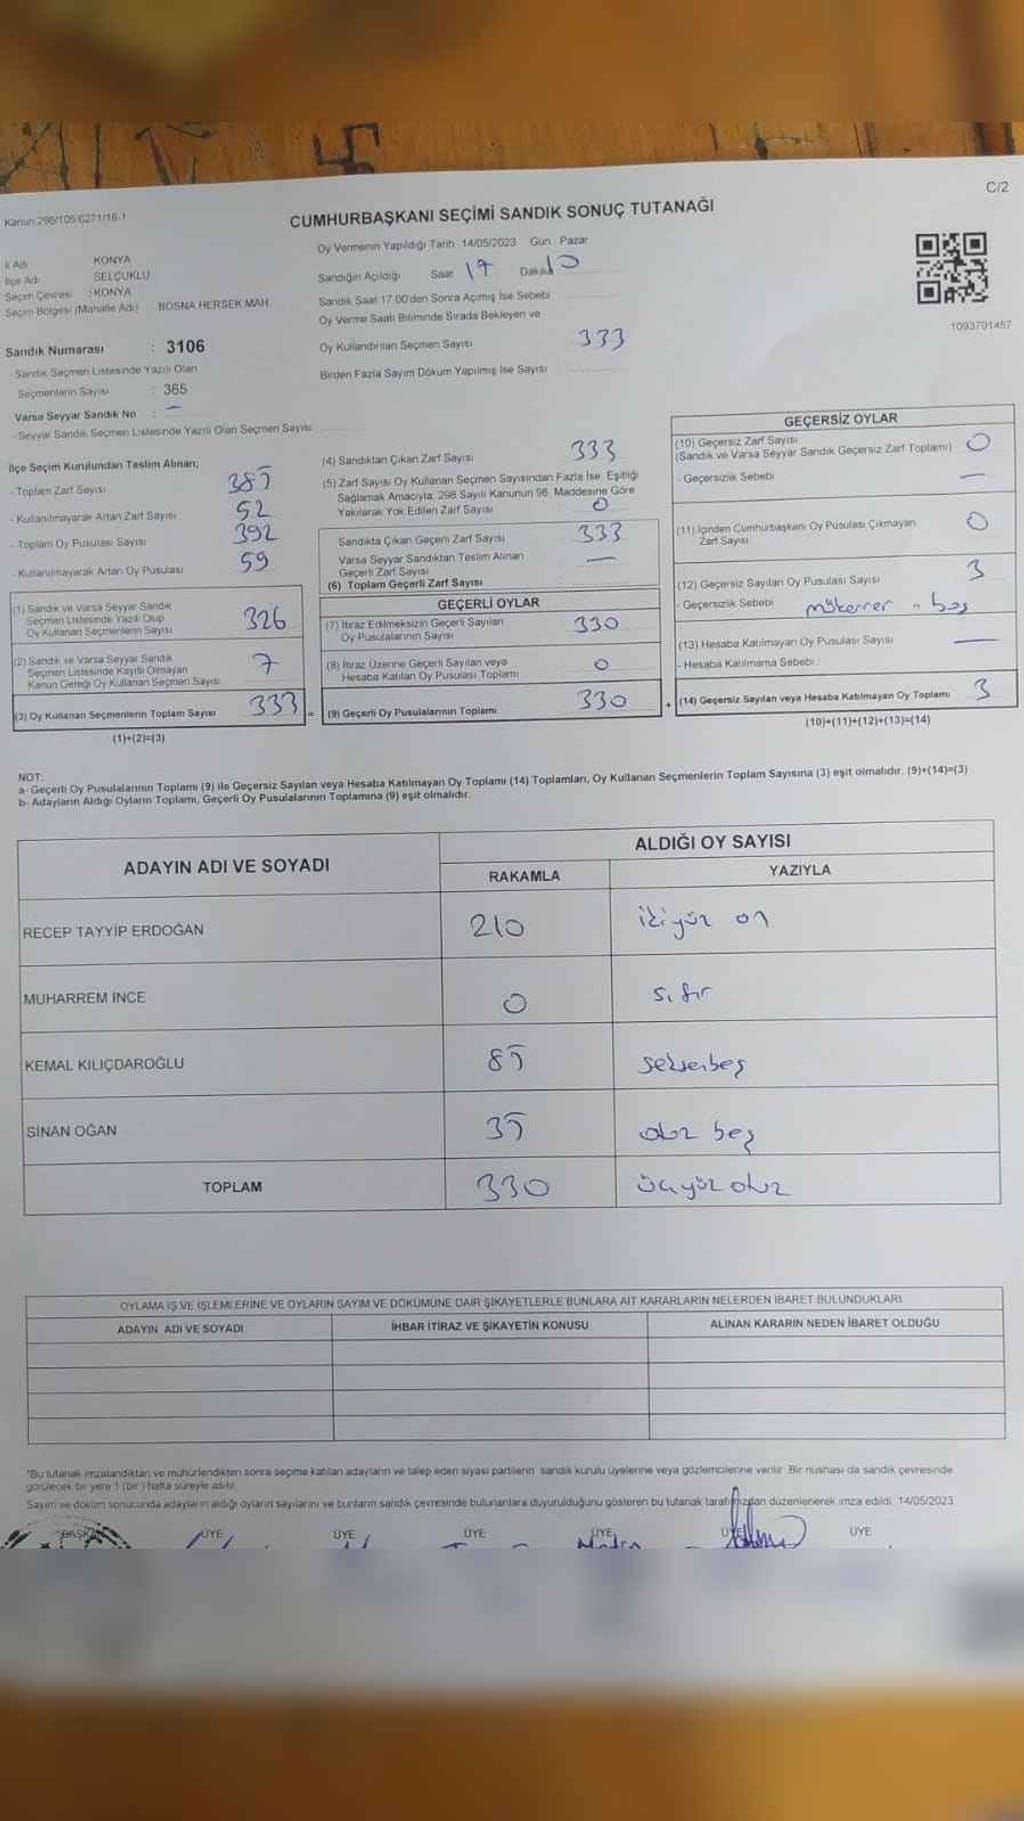 C/2
Kanun 298/105 6271/16-1
CUMHURBAŞKANI SEÇİMİ SANDIK SONUÇ TUTANAĞI
Oy Vermenin Yapıldığı Tarih 14/05/2023 Gün Pazar
İl Adı KONYA
İlçe Adı SELÇUKLU
Seçim Çevresi : KONYA
Seçim Bölgesi (Mahalle Adı) BOSNA HERSEK MAH.
Sandığın Açıldığı Saat 17 Dakika 10
Sandık Saat 17.00'den Sonra Açılmış İse Sebebi
Oy Verme Saati Bitiminde Sırada Bekleyen ve
Oy Kullandırılan Seçmen Sayısı 333
Birden Fazla Sayım Döküm Yapılmış İse Sayısı
1093791457
Sandık Numarası : 3106
- Sandık Seçmen Listesinde Yazılı Olan
Seçmenlerin Sayısı : 365
Varsa Seyyar Sandık No : —
- Seyyar Sandık Seçmen Listesinde Yazılı Olan Seçmen Sayısı
İlçe Seçim Kurulundan Teslim Alınan;
- Toplam Zarf Sayısı 385
- Kullanılmayarak Artan Zarf Sayısı 52
- Toplam Oy Pusulası Sayısı 392
- Kullanılmayarak Artan Oy Pusulası 59
(1) Sandık ve Varsa Seyyar Sandık
Seçmen Listesinde Yazılı Olup
Oy Kullanan Seçmenlerin Sayısı 326
(2) Sandık ve Varsa Seyyar Sandık
Seçmen Listesinde Kayıtlı Olmayan
Kanun Gereği Oy Kullanan Seçmen Sayısı 7
(3) Oy Kullanan Seçmenlerin Toplam Sayısı 333 =
(1)+(2)=(3)
(4) Sandıktan Çıkan Zarf Sayısı 333
(5) Zarf Sayısı Oy Kullanan Seçmen Sayısından Fazla İse, Eşitliği
Sağlamak Amacıyla; 298 Sayılı Kanunun 98. Maddesine Göre
Yakılarak Yok Edilen Zarf Sayısı 0
Sandıkta Çıkan Geçerli Zarf Sayısı 333
Varsa Seyyar Sandıktan Teslim Alınan
Geçerli Zarf Sayısı —
(6) Toplam Geçerli Zarf Sayısı
GEÇERLİ OYLAR
(7) İtiraz Edilmeksizin Geçerli Sayılan
Oy Pusulalarının Sayısı 330
(8) İtiraz Üzerine Geçerli Sayılan veya
Hesaba Katılan Oy Pusulası Toplamı 0
(9) Geçerli Oy Pusulalarının Toplamı 330 +
GEÇERSİZ OYLAR
(10) Geçersiz Zarf Sayısı
(Sandık ve Varsa Seyyar Sandık Geçersiz Zarf Toplamı) 0
- Geçersizlik Sebebi —
(11) İçinden Cumhurbaşkanı Oy Pusulası Çıkmayan
Zarf Sayısı 0
(12) Geçersiz Sayılan Oy Pusulası Sayısı 3
- Geçersizlik Sebebi mükerrer - boş
(13) Hesaba Katılmayan Oy Pusulası Sayısı —
- Hesaba Katılmama Sebebi :
(14) Geçersiz Sayılan veya Hesaba Katılmayan Oy Toplamı 3
(10)+(11)+(12)+(13)=(14)
NOT:
a- Geçerli Oy Pusulalarının Toplamı (9) ile Geçersiz Sayılan veya Hesaba Katılmayan Oy Toplamı (14) Toplamları, Oy Kullanan Seçmenlerin Toplam Sayısına (3) eşit olmalıdır. (9)+(14)=(3)
b- Adayların Aldığı Oyların Toplamı, Geçerli Oy Pusulalarının Toplamına (9) eşit olmalıdır.
ADAYIN ADI VE SOYADI ALDIĞI OY SAYISI
RAKAMLA YAZIYLA
RECEP TAYYİP ERDOĞAN 210 ikiyüz on
MUHARREM İNCE 0 sıfır
KEMAL KILIÇDAROĞLU 85 seksenbeş
SİNAN OĞAN 35 otuz beş
TOPLAM 330 üçyüz otuz
OYLAMA İŞ VE İŞLEMLERİNE VE OYLARIN SAYIM VE DÖKÜMÜNE DAİR ŞİKAYETLERLE BUNLARA AİT KARARLARIN NELERDEN İBARET BULUNDUKLARI
ADAYIN ADI VE SOYADI İHBAR İTİRAZ VE ŞİKAYETİN KONUSU ALINAN KARARIN NEDEN İBARET OLDUĞU
*Bu tutanak imzalandıktan ve mühürlendikten sonra seçime katılan adayların ve talep eden siyasi partilerin sandık kurulu üyelerine veya gözlemcilerine verilir. Bir nüshası da sandık çevresinde
görülecek bir yere 1 (bir) hafta süreyle asılır.
Sayım ve döküm sonucunda adayların aldığı oyların sayılarını ve bunların sandık çevresinde bulunanlara duyurulduğunu gösteren bu tutanak tarafımızdan düzenlenerek imza edildi. 14/05/2023
BAŞKAN ÜYE ÜYE ÜYE ÜYE ÜYE ÜYE